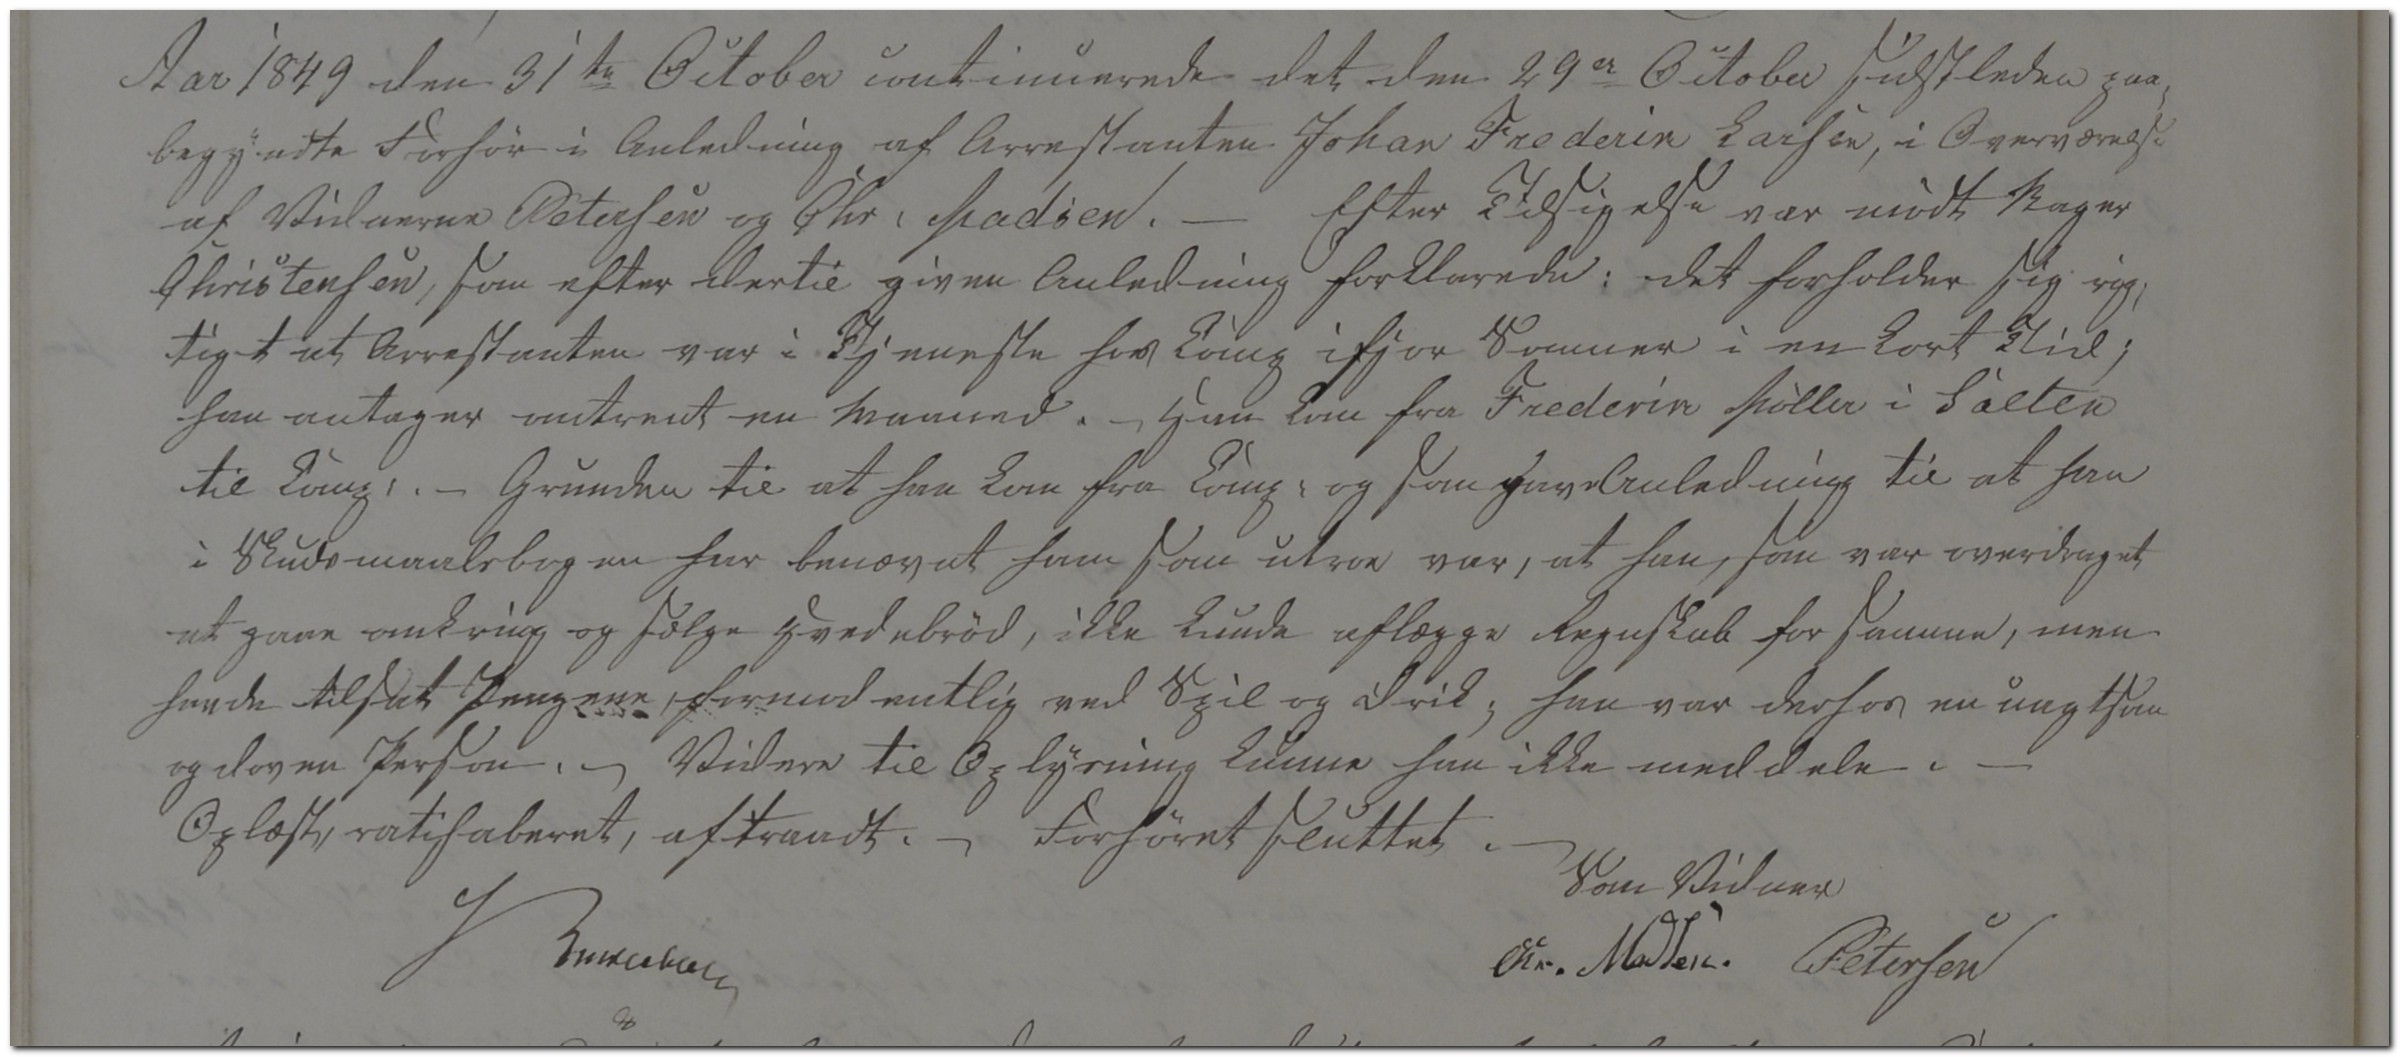 Aar 1849 den 31te October continuerede det den 29er October sidstleden paa-
begyndte Forhør i Anledning af Arrestanten Johan Frederik Larsen, i Overværelse
af Vidnerne Petersen og Chr. Madsen. — Efter Tilsigelse var mødt Bager
Christensen, som efter dertil given Anledning forklarede: det forholder sig rig-
tigt at Arrestanten var i Tjeneste hos Comp ifjor Sommer i en kort Tid;
han antager omtrent en Maaned. — Han kom fra Frederik Møller i Salten
til Comp:. — Grunden til at han kom fra Comp: og som gav Anledning til at han
i Skudsmaalsbogen har benævnt ham som utroe var, at han, som var overdraget
at gaae omkring og sælge Hvedebrød, ikke kunde aflægge Regnskab for samme, men
havde tilsat Pengene, formodentlig ved Spil og Drik; han var derhos en
og doven Person. — Videre til Oplysning kunne han ikke meddele. —
Oplæst, ratihaberet, aftraadt. — Forhøret sluttet. —
Som Vidner
Chr. Madsen. Petersen